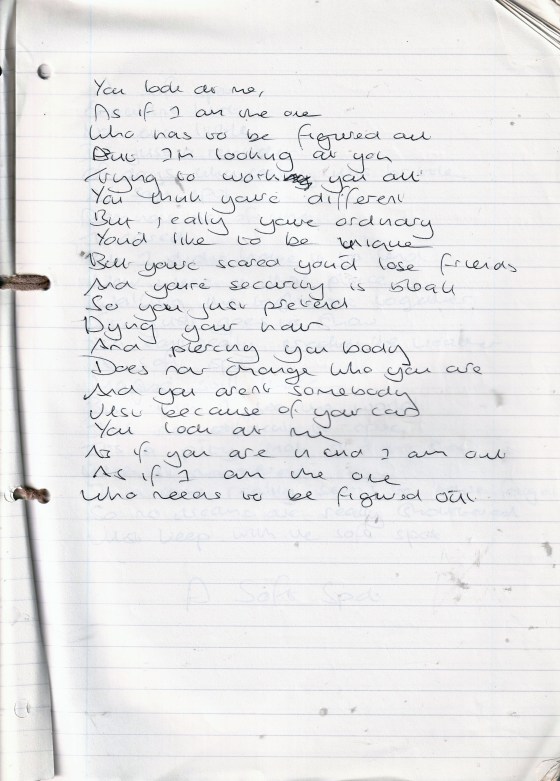 You look at me,
As if I am the one
Who has to be figured out
But I'm looking at you
Trying to work you out
You think you're different
But really you're ordinary
You'd like to be unique
But you're scared you'd lose friends
And you're security is
So you just pretend
Dying your hair
And piercing you body
Does not change who you are
And you aren't somebody
Just because of your
You look at me
As if you are in and I am out
As if I am the one
Who needs to be figured out.
A Soft Spot